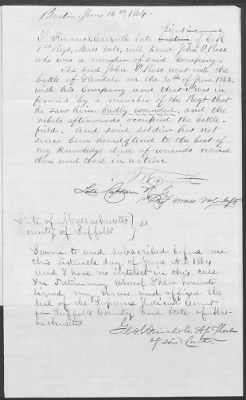 Boston June 16th 1864.
Lieut
I Francis late of Co K
1st Regt Mass Vols, well knew John P Ross
who was a member of said Company.
The said John P Ross was with the
battle of Glendale on the 30th of June 1862.
with his Company, and that I was in
formed by a member of the Regt that
he saw him badly wounded, and the
rebels afterwards occupied the battle-
field. And said soldier has not
since been heard of and to the best of
my knowledge died of wounds received
then and there in action
Late
State of Massachusetts
County of Suffolk ss
Sworn to and subscribed before me
this sixteenth day of June A.D. 1864
And I have no interest in this case
In testimony whereof I have hereunto
signed my name and affixed the
seal of the Supreme Judicial Court
for Suffolk County and State of Mas-
sachusetts
Geo
of said Court